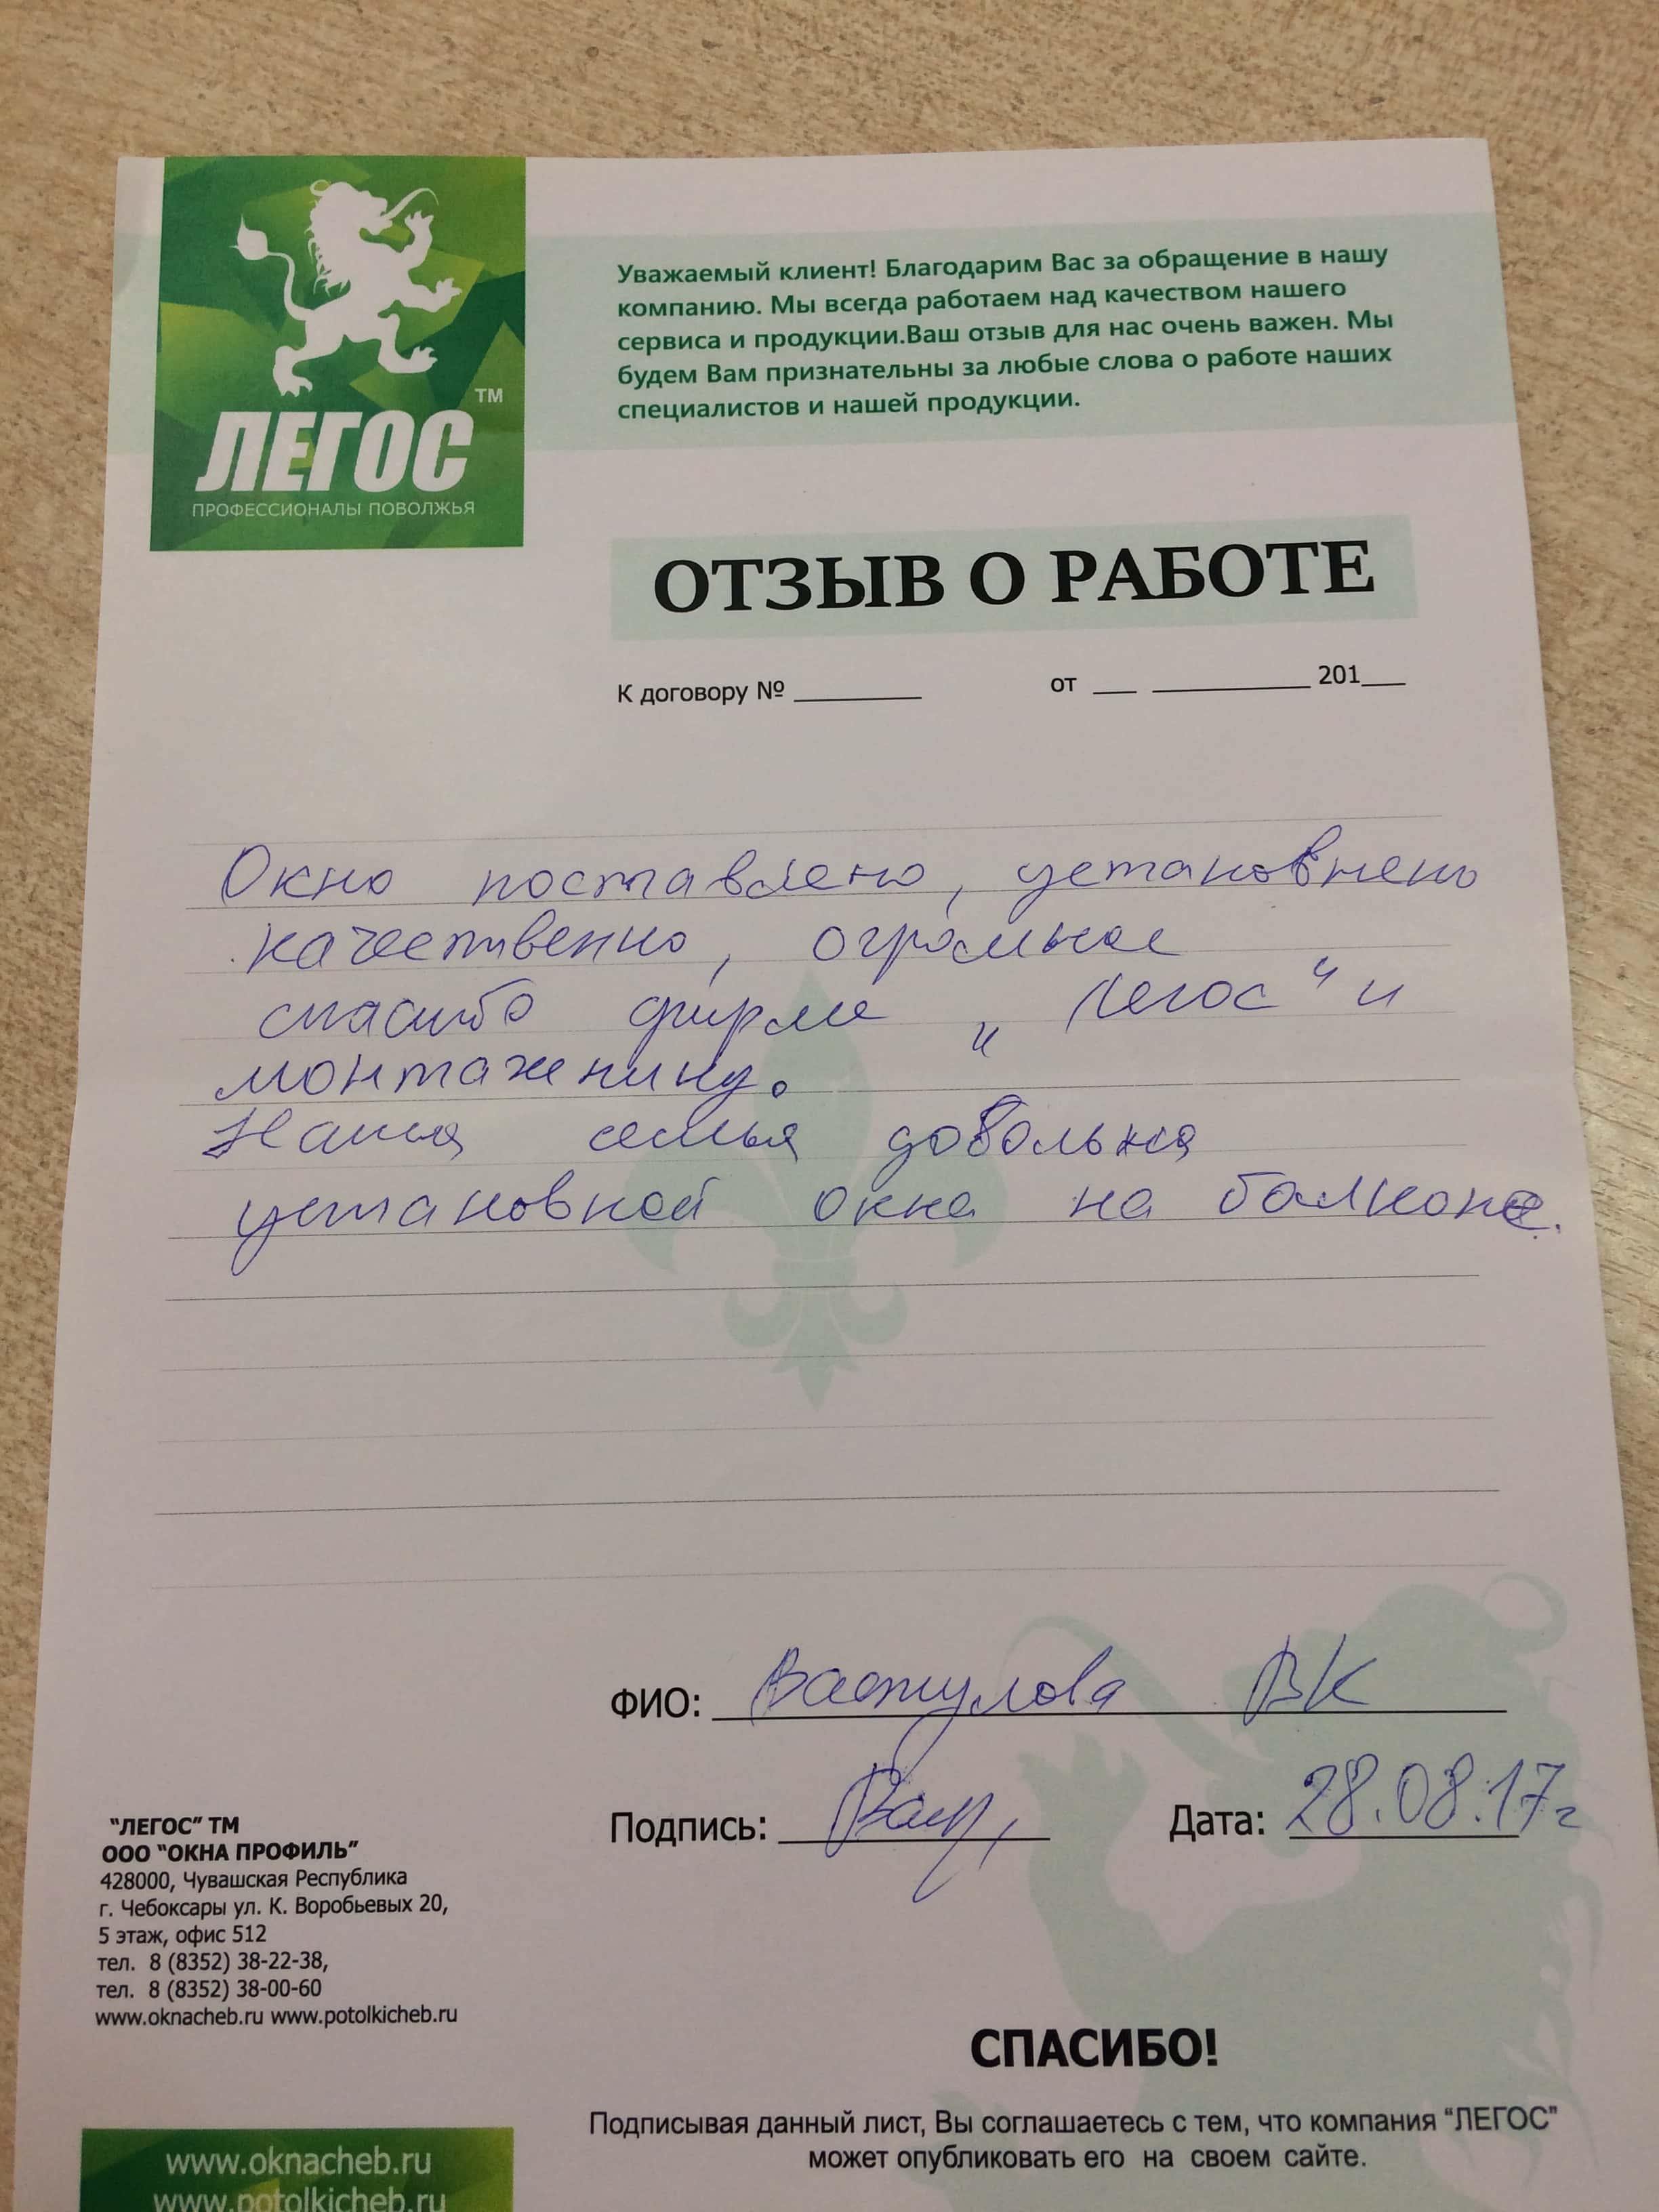 ЛЕГОС™
ПРОФЕССИОНАЛЫ ПОВОЛЖЬЯ
Уважаемый клиент! Благодарим Вас за обращение в нашу
компанию. Мы всегда работаем над качеством нашего
сервиса и продукции.Ваш отзыв для нас очень важен. Мы
будем Вам признательны за любые слова о работе наших
специалистов и нашей продукции.
ОТЗЫВ О РАБОТЕ
К договору № ______ от __ ________ 201__
Окно поставлено, установнено
качественно, огромное
спасибо фирме „Легос“ и
монтаженику.
Наша семья довольна
установкой окна на балконе.
ФИО: Вастулова ВК
Подпись: Дата: 28.08.17г
"ЛЕГОС" ТМ
ООО "ОКНА ПРОФИЛЬ"
428000, Чувашская Республика
г. Чебоксары ул. К. Воробьевых 20,
5 этаж, офис 512
тел. 8 (8352) 38-22-38,
тел. 8 (8352) 38-00-60
www.oknacheb.ru www.potolkicheb.ru
СПАСИБО!
Подписывая данный лист, Вы соглашаетесь с тем, что компания "ЛЕГОС"
может опубликовать его на своем сайте.
www.oknacheb.ru
www.potolkicheb.ru